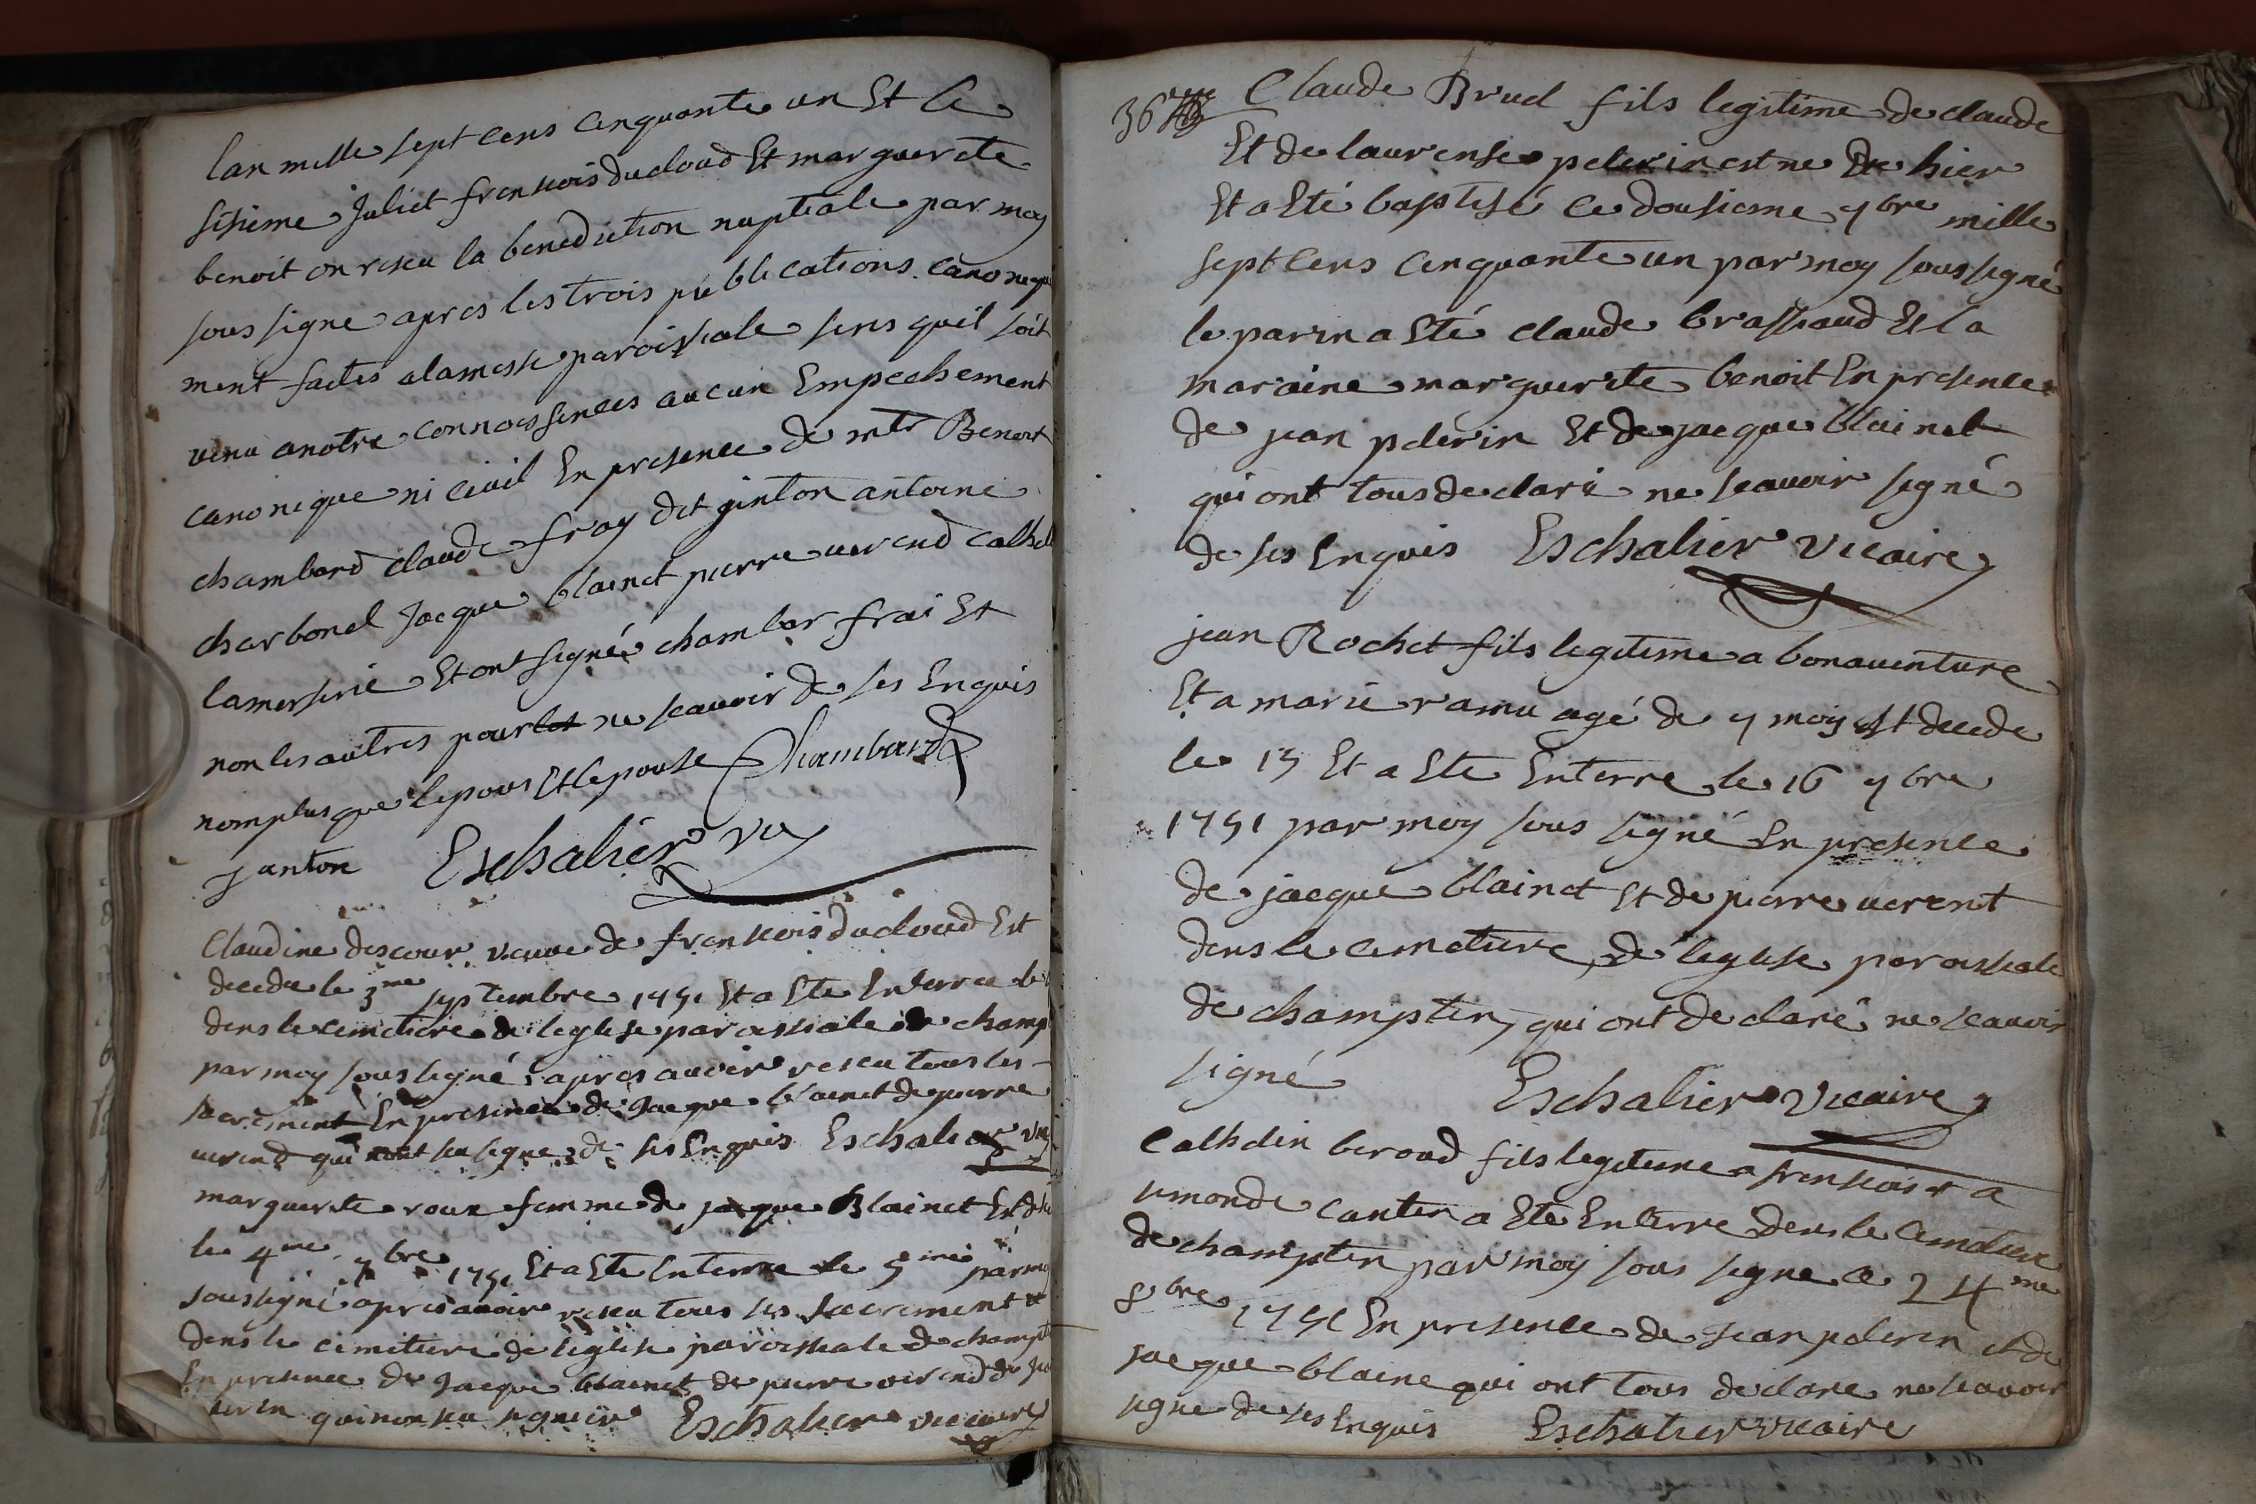 lan mille sept cens cinquante un Et le
sisieme Juliet frensois ducloud Et marguerite
benoit on reseu la benediction nuptiale par moy
sous signe apres les trois publications canonique
ment faites a la messe paroissiale sens quil soit
venu a notre connoissences aucun Empechement
canonique ni civil En presence de mtr Benoit
chambard claude fray dit ginton antoine
charbonel Jacque blainet pierre verend Calhel
lamerserie Et ont signé chambar frai Et
non les autres pour ne scavoir de ses Enquis
nomplus que lepous Et lepouse Chambard
janton Eschalier vic
Claudine descour veuve de frensois ducloud Est
decedee le 3me septembre 1751 Et a Ete Enterree le
dens le cimetiere de leglise paroissiale de champ
par moy sous signé apres avoir reseu tous les
sacrement En presence de Jacque blainet de pierre
verend qui nont seu signe de ses Enquis Eschalier vic
marguerite roux femme de jacque Blainet Est
le 4me 7bre 1751 Et a Ete Enterree le 5me par moy
sous signé apres avoir reseu tous ses sacrement
dens le cimetiere de leglise paroissiale de champt
En presence de Jacque blainet de pierre verend de
qui non seu signer Eschalier viccaire
36 Claude Bruel fils legitime de claude
Et de laurense pelerin est ne de hier
Et a Eté baptisé ce dousieme 7bre mille
sept cens cinquante un par moy sous signé
le parin a Eté claude brassaud Et la
maraine marguerite benoit En presence
de jean pelerin Et de jacque blainet
qui ont tous declaré ne scavoir signé
de ses Enquis Eschalier vicaire
jean Rochet fils legitime a bonaventure
Et a marie ramu agé de 7 moy Est decede
le 15 Et a Ete Enterre le 16 7bre
1751 par moy sous signé En presence
de jacque blainet Et de pierre verent
dens le cimetiere de leglise paroissiale
de champtin qui ont declaré ne scavoir
signé Eschalier vicaire
Calhelin beroud fils legitime a frensois Et a
simonde cantin a Ete Enterre dens le cimetiere
de champtin par moy sous signe le 24me
8bre 1751 En presence de jean pelerin et de
jacque blaine qui ont tous declare ne scavoir
signe de ses Enquis Eschalier vicaire